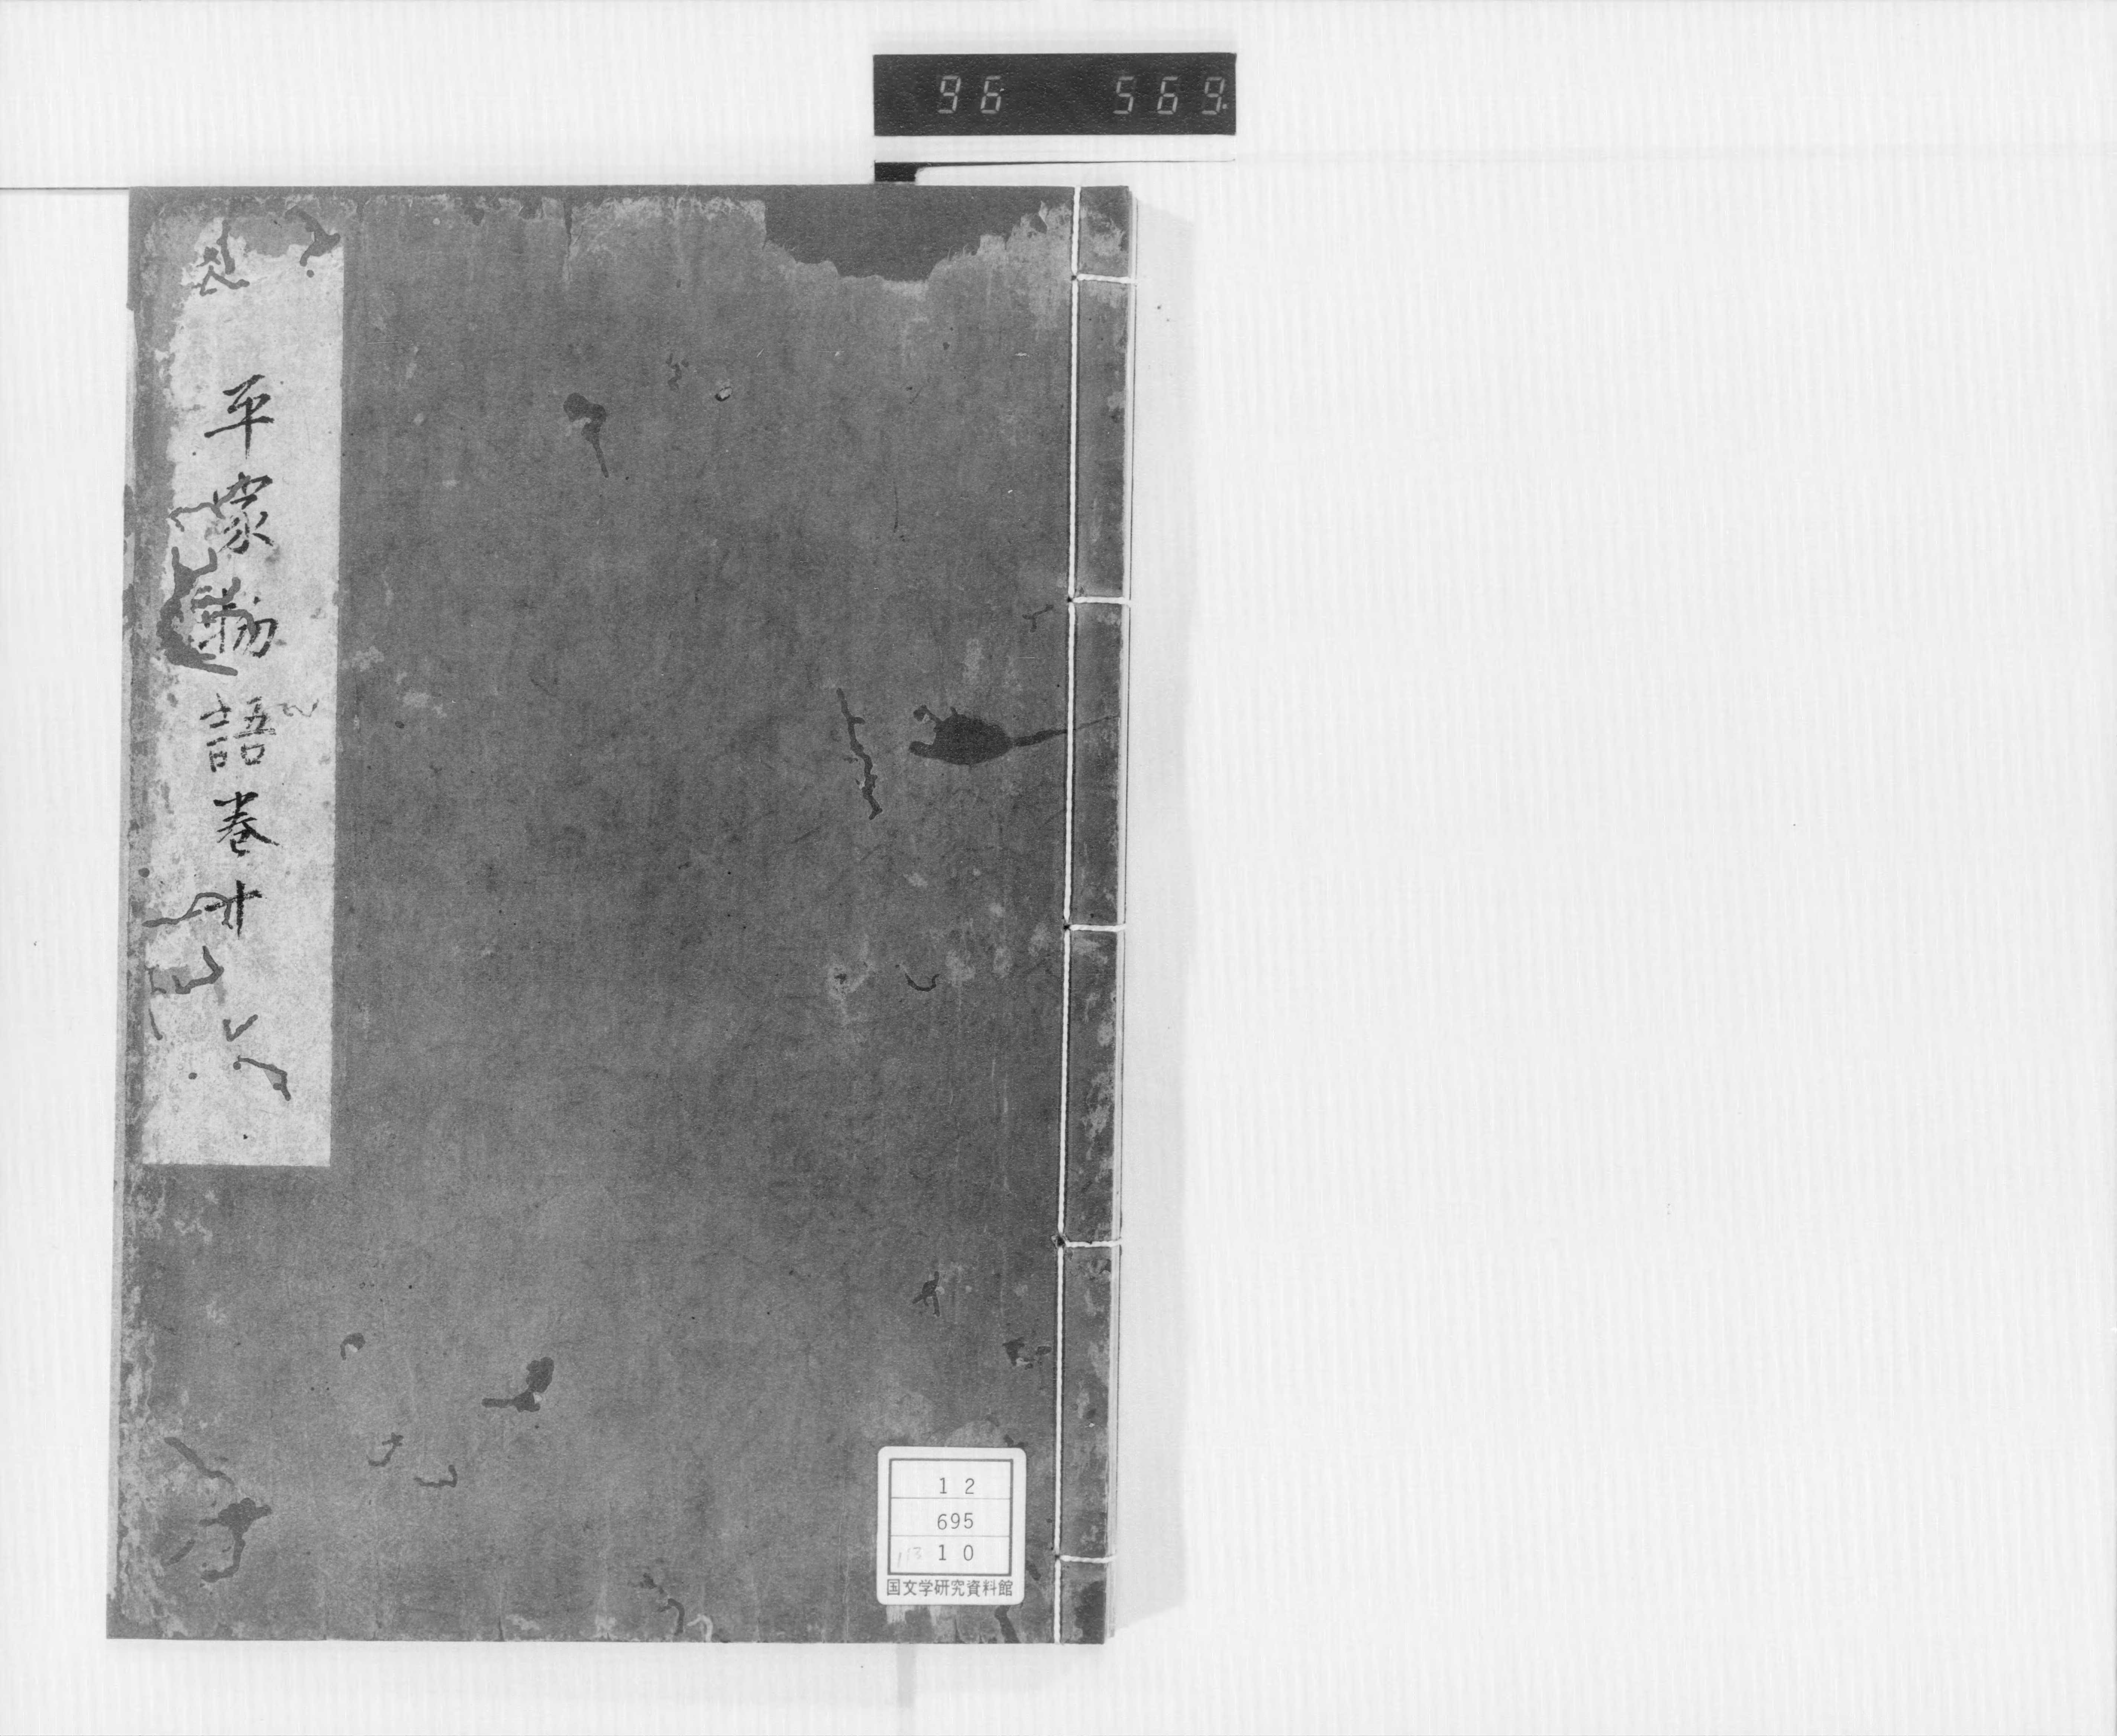 96 569.
平家物語巻十
12
695
10
国文学研究資料館